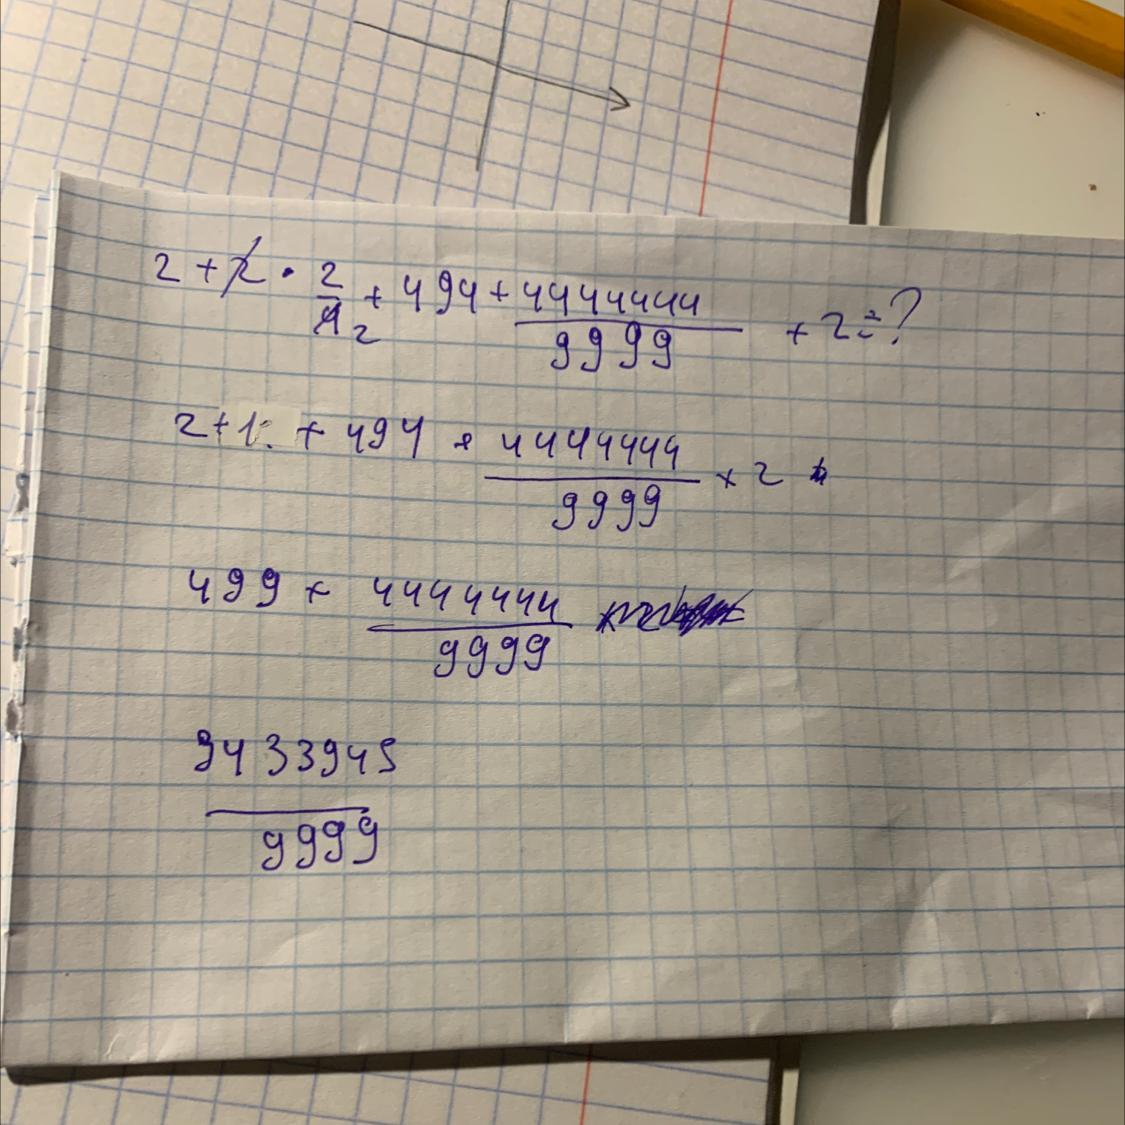 2 + 2 · 2/4 2 + 494 + 4444444/9999 + 2 = ?
2 + 1 + 494 + 4444444/9999 + 2
499 + 4444444/9999
9433945/9999